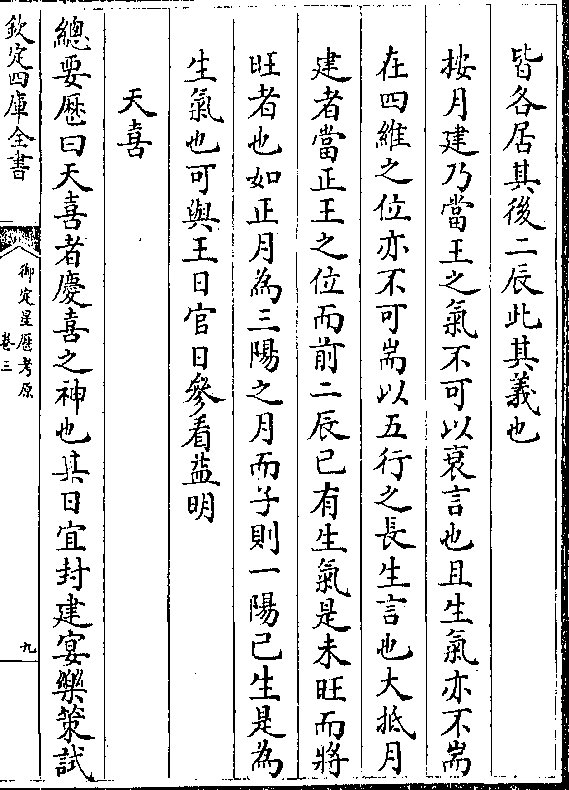 皆各居其後二辰此其義也
按月建乃當王之氣不可以衰言也且生氣亦不耑
在四維之位亦不可耑以五行之長生言也大抵月
建者當正王之位而前二辰已有生氣是未旺而將
旺者也如正月為三陽之月而子則一陽已生是為
生氣也可與王日官日參看益明
天喜
總要厯曰天喜者慶喜之神也其日宜封建宴樂策試
欽定四庫全書
御定星厯考原
卷三
九